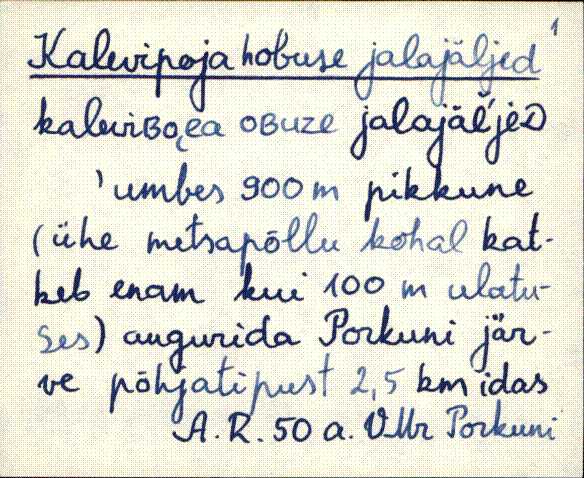 1
Kalevipoja hobuse jalajäljed
kaleviBoea oBuze jalajäĺjeD
'umbes 900 m pikkune
(ühe metsapõllu kohal kat-
keb enam kui 100 m ulatu-
ses) augurida Porkuni jär-
ve põhjatipust 2,5 km idas
A. R. 50 a. VMr Porkuni